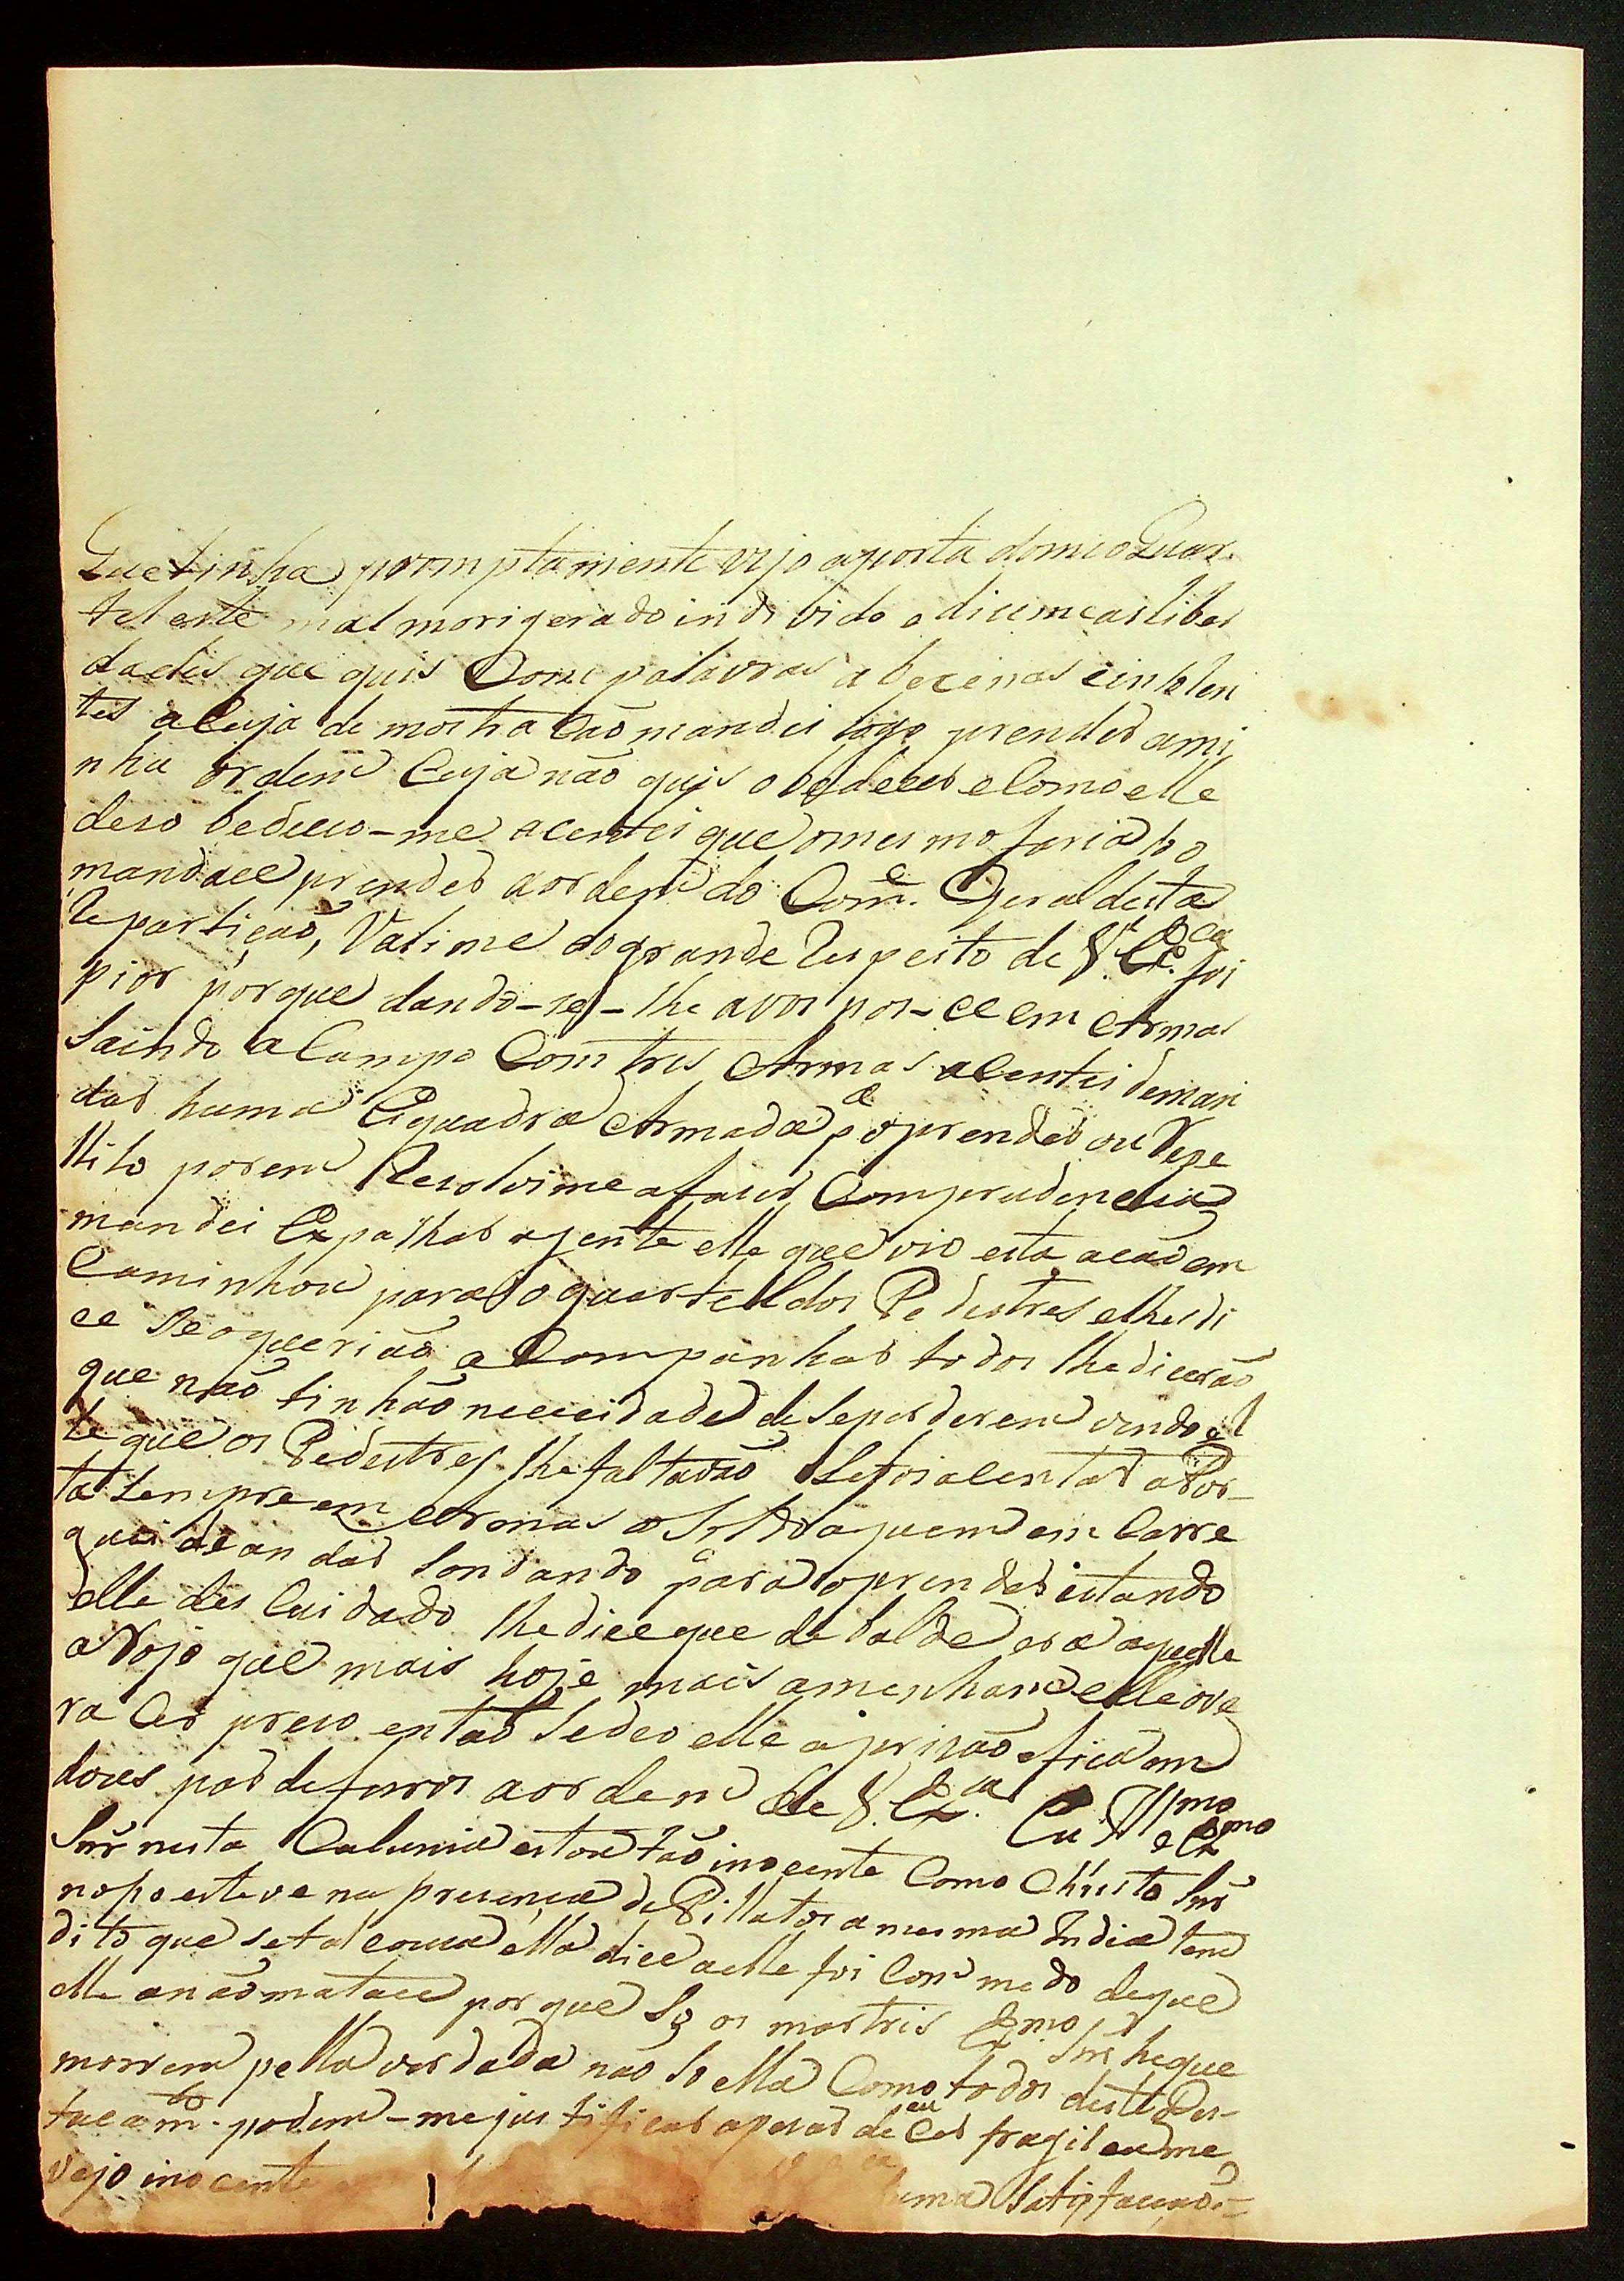 Que tinha promptamente vejo aporta domeo Quar
tel este mal morigerado individo e diceme as liber
dades que quis Com palavras abecenas e insolen
tes a Cuja demostracão mandei logo prender ami
nha ordem Cuja não quis obedecer e Como elle
desobedeceo-me acentei que omesmo faria se o
mandace prender aordem do Com.e Geral desta
Repartição, Valime do grande Respeito de V. Ex.cea foi
pior porque dando-se-lhe avos pos-ce em Armas
Saindo a Campo Com tres Armas acentei deman
dar huma Esquadra Armada pa oprender ou
porem Resolvime afaser Comprudencia
mandei Expalhar agente elle que vio esta acaõ em
Caminhou para o quartell dos Pedestres elhes di
ce Seoqueriaõ aCompanhar todos lhe dicerão
que não tinhão nececidade de Seperderem vendo el
le que os Pedestres lhe faltavaõ Sefoi acentar aPor-
ta Sempre em Armas o Soldo aquem em Carre
guei de andar Sondando para oprender estando
elle des Cuidado lhe dice que de balde era aquelle
aRojo que mais hoje mais amenham elle ove
ra Cer preso entaõ Sedeo elle aprizaõ eficaem
doces par de ferros aordem de V. Ex.ca Eu Ill.mo e Ex.mo
Snr nesta Calunia estou taõ inocente Como Christo Snr
noso esteve na presença de Pillatos amesma India tem
dito que se tal couza ella dice aelle foi Com medo deque
elle anaõ matace porque So os martris Ex.mo Snr heque
morrem pella verdade naõ So ella Como todos deste Des-
tacam.to podem-me justificar apesar de eu Cer fragil eu me
vejo inocente uma Satisfacaõ-